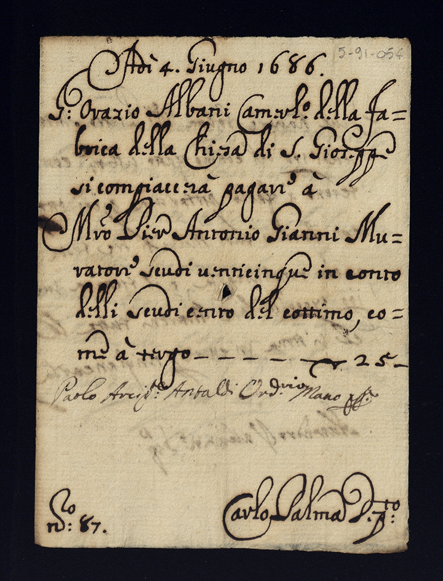 5-91-054
Adi 4. Giugno 1686.
S.r Orazio Albani Camerl.o della fa=
brica della Chiesa di S. Gioseppe
si compiacerà pagare à
M.ro Pier Antonio Gianni Mu=
ratore scudi venticinque in conto
delli scudi cento del cottimo, co=
me à tergo — — — — — 25 -
Paolo Antaldi Ord.rio Mano
n.o: 87.
Carlo Palma